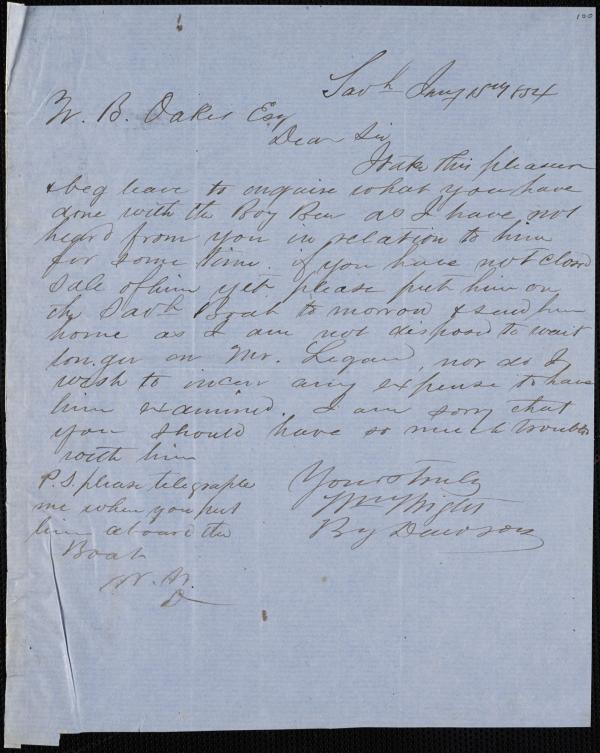 100
Savh Jany 18th 1854
W. B. Oakes Esq
Dear Sir
I take this pleasure
& beg leave to enquire what you have
done with the Boy Ben as I have not
heard from you in relation to him
for some time. if you have not closed
Sale of him yet please put him on
the Savh Boat to morrow & send him
home as I am not disposed to wait
longer on Mr. Legare, nor do I
wish to incur any expense to have
him examined. I am sorry that
you should have so much trouble
with him
Yours truly
Wm Wright
By Dawson
P.S. please telegraph
me when you put
him aboard the
Boat
W. W.
D